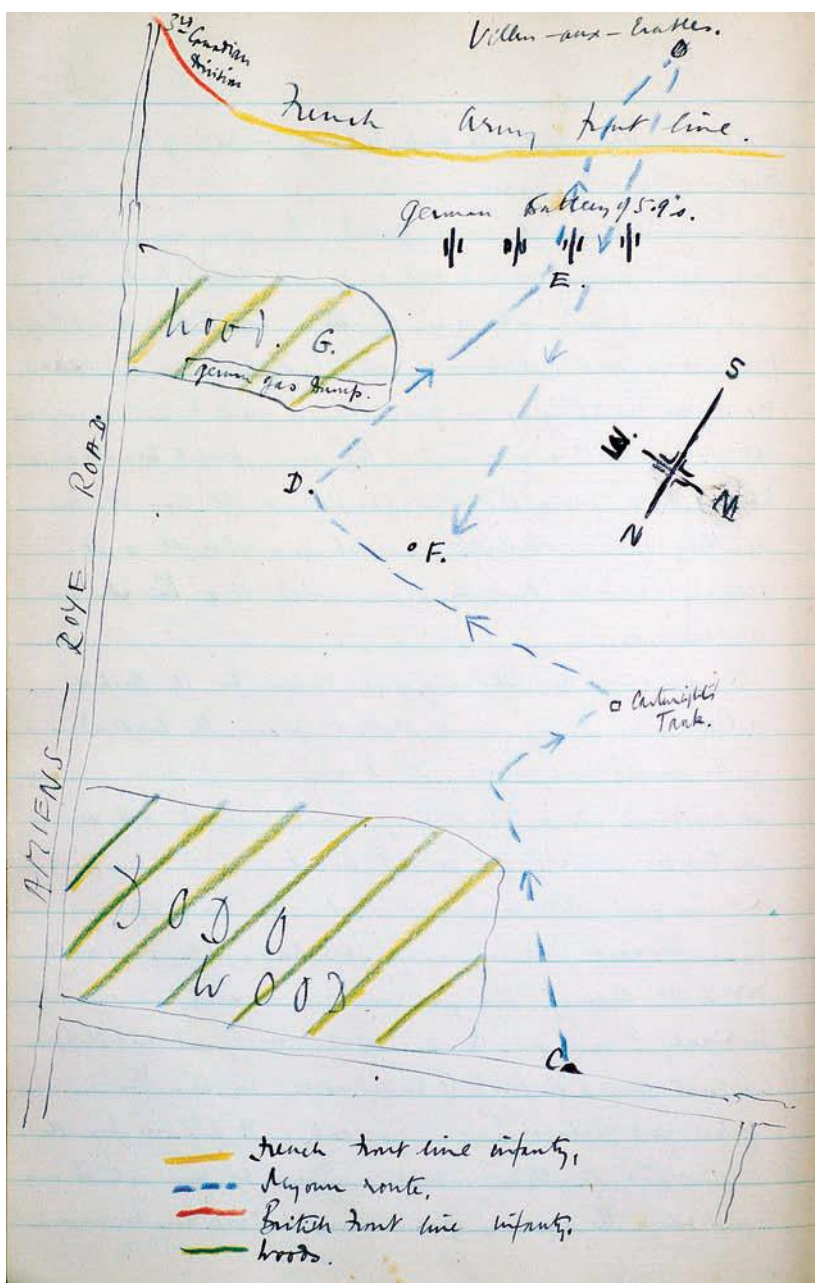 3rd Canadian
Division
Villers-aux-Erables.
French Army front line.
German Battery of 5.9's.
E.
Wood. G.
German gas dump.
D.
F.
S
W.
N
AMIENS — ROYE ROAD.
Cartwright's
Tank.
DODO
WOOD.
C
French Front line infantry,
My own route,
British Front line infantry.
Woods.